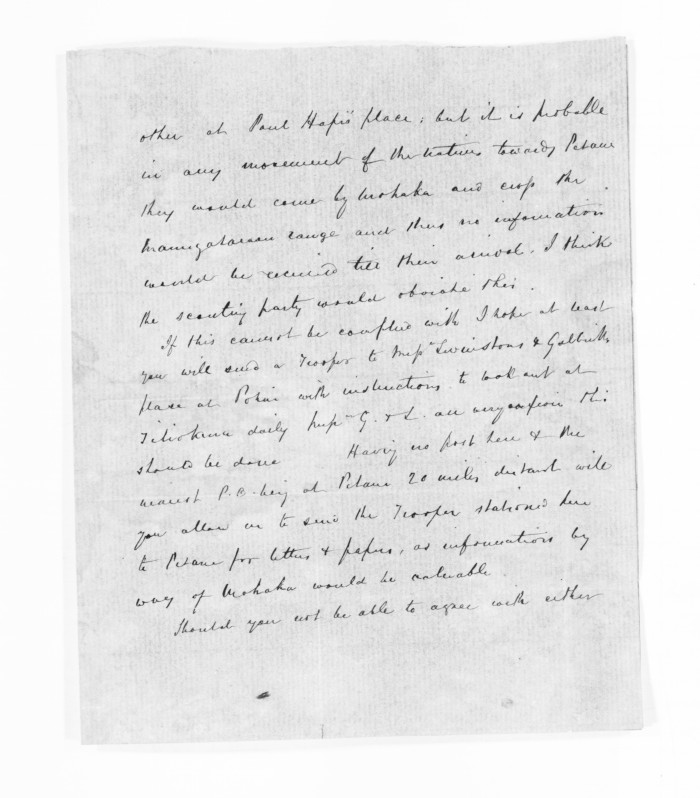 other at Paul Hapi's place; but it is probable
in any movement of the natives towards Petane
they would come by Mohaka and cross the
Maungaharuru range and thus no information
would be received till their arrival. I think
the scouting party would obviate this.
If this cannot be complied with I hope at least
you will send a Trooper to Messrs & Galbraith's
place at Pohui with instructions to look out at
Titiokura daily Messrs G. & L. are very anxious this
should be done Having no post here & the
nearest P.O. being at Petane 20 miles distant will
you allow me to send the Trooper stationed here
to Petane for letters & papers, as informations by
way of Mohaka would be valuable.
Should you not be able to agree with either